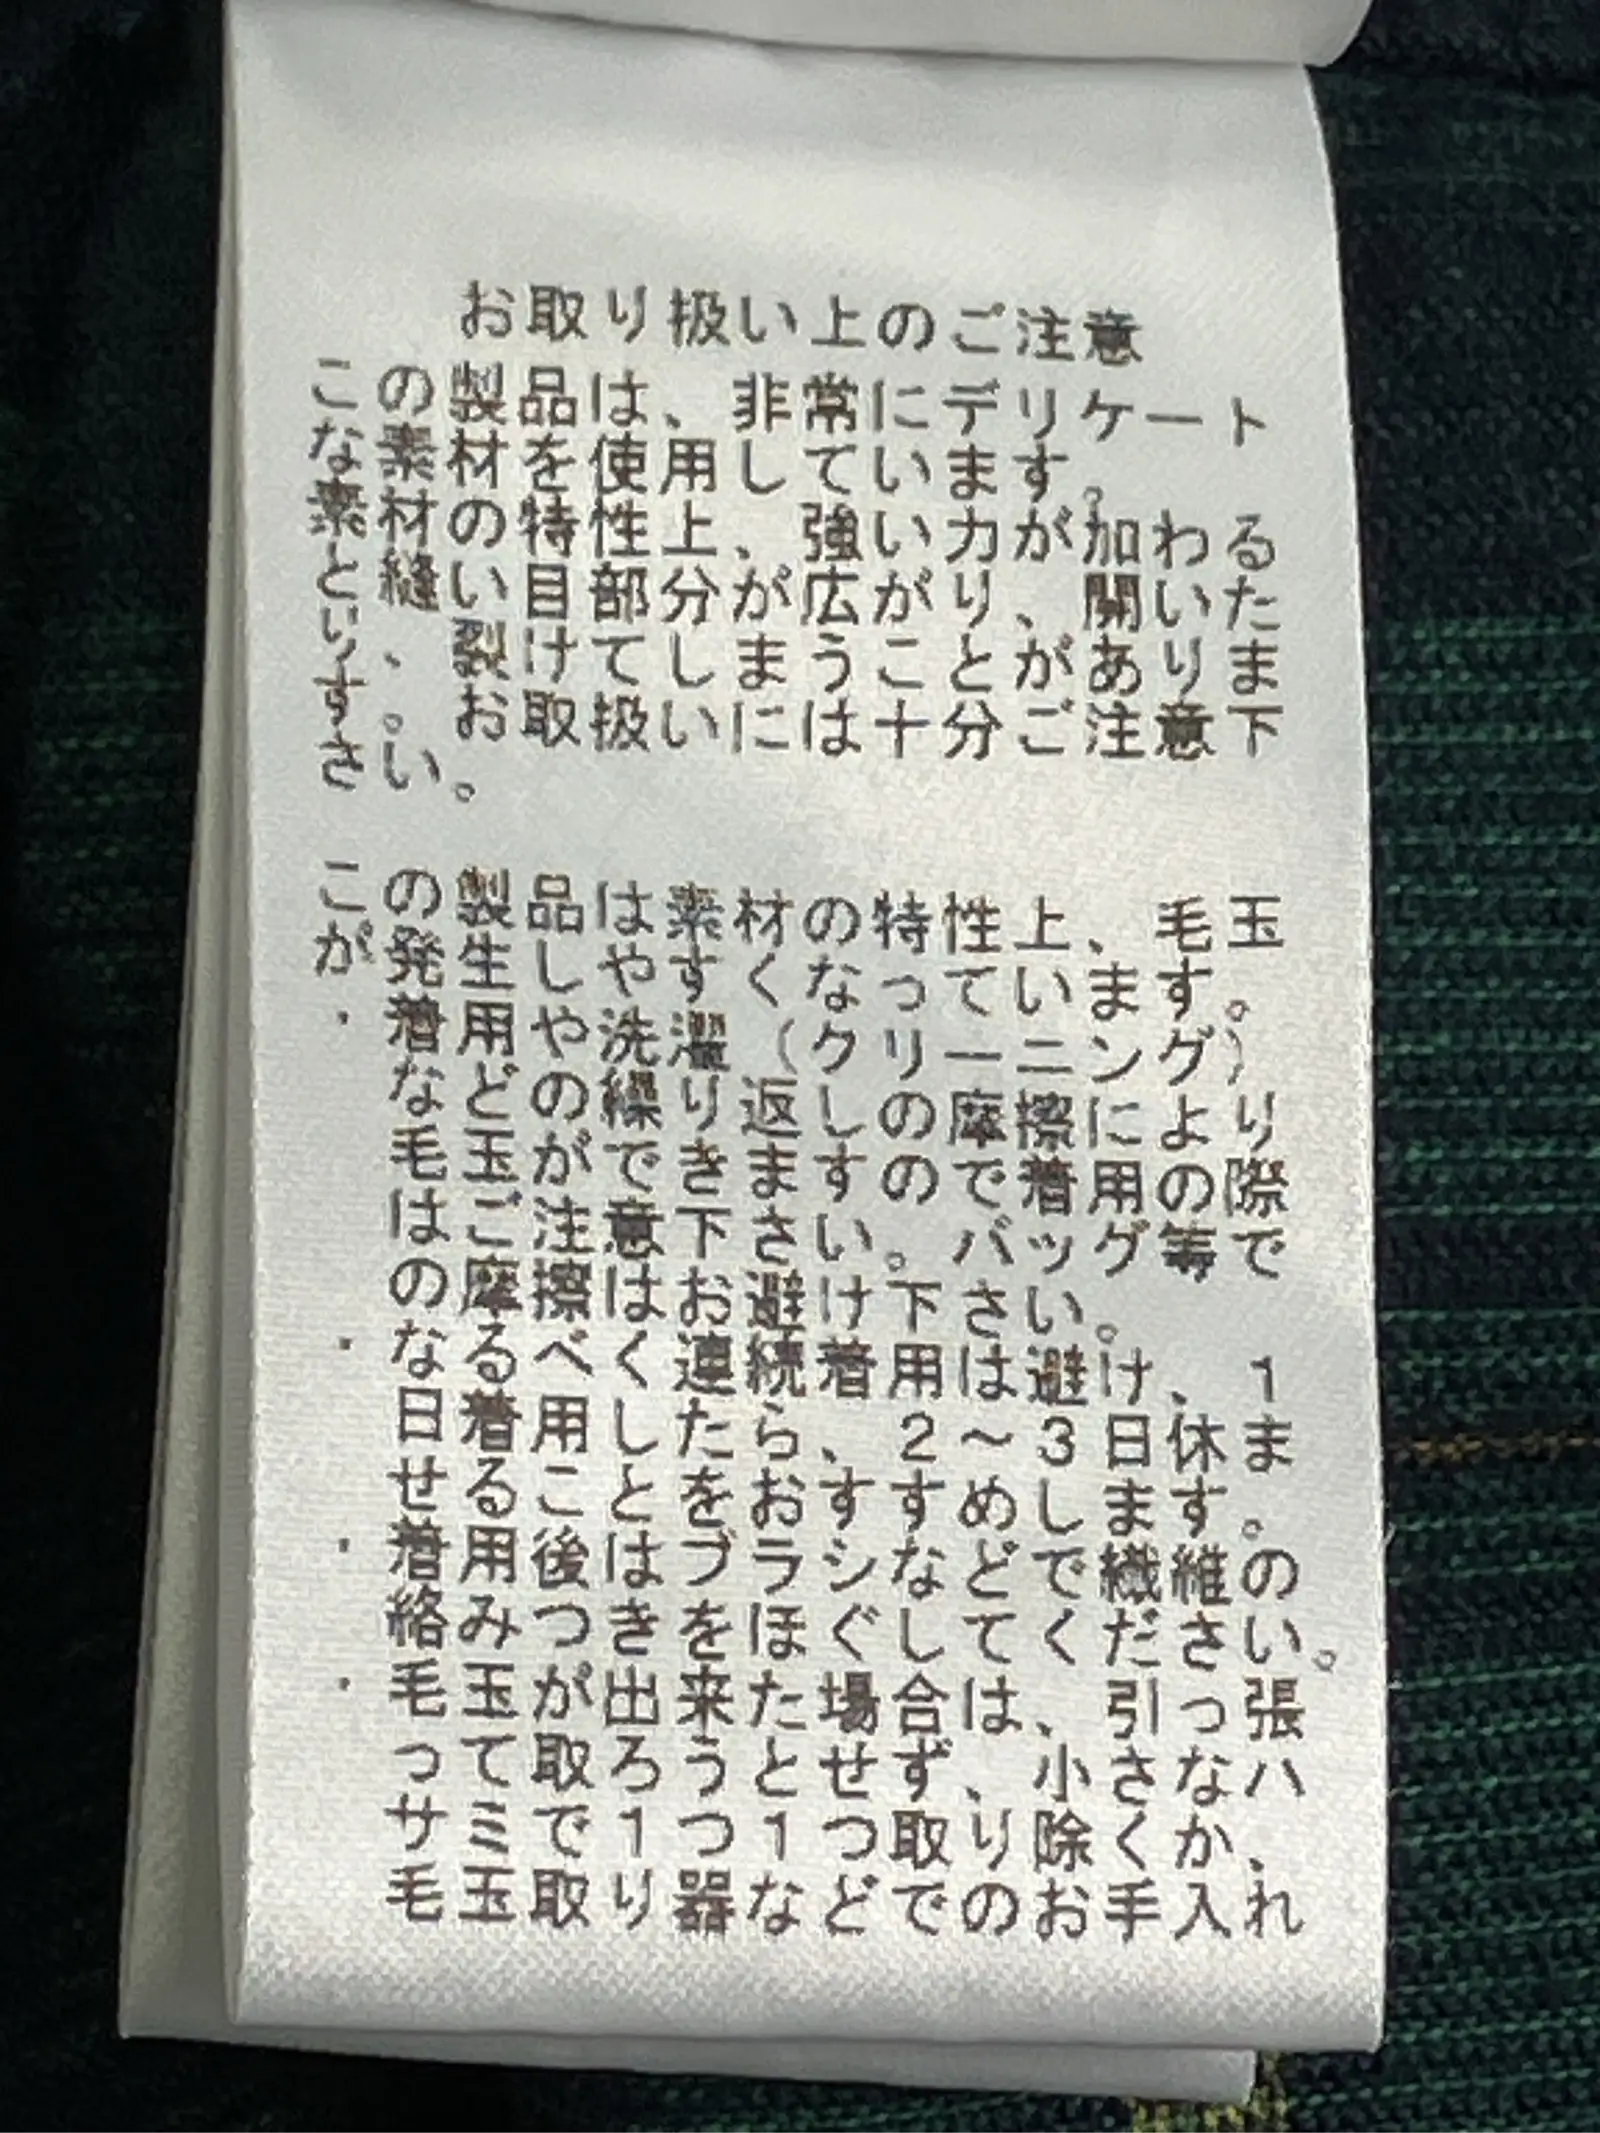 お取り扱い上のご注意
この製品は、非常にデリケート
な素材を使用しています。
素材の特性上、強い力が加わる
と縫い目部分が広がり、開いた
り、裂けてしまうことがありま
す。お取扱いには十分ご注意下
さい。
この製品は素材の特性上、毛玉
が発生しやすくなっています。
・着用や洗濯（クリーニング）
などの繰り返しの摩擦により
毛玉ができますので着用の際
はご注意下さい。バッグ等で
の摩擦はお避け下さい。
・なるべく連続着用は避け、1
日着用したら、2～3日休ま
せることをおすすめします。
・着用後はブラシなどで繊維の
絡みつきをほぐしてください。
・毛玉が出来た場合は、引っ張
って取ろうとせず、小さなハ
サミで1つ1つ取り除くか、
毛玉取り器などでのお手入れ